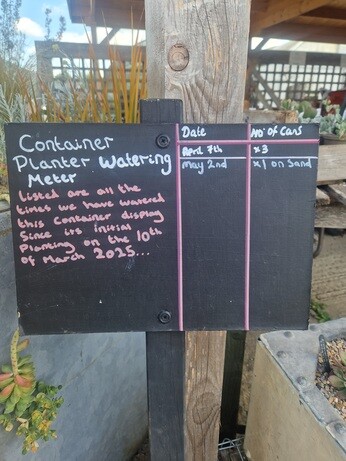 Container
Planter Watering
Meter
Listed are all the
times we have watered
this container display
Since its initial
Planting on the 10th
of March 2025...
Date No of Cans
April 7th x3
May 2nd x1 on Sand